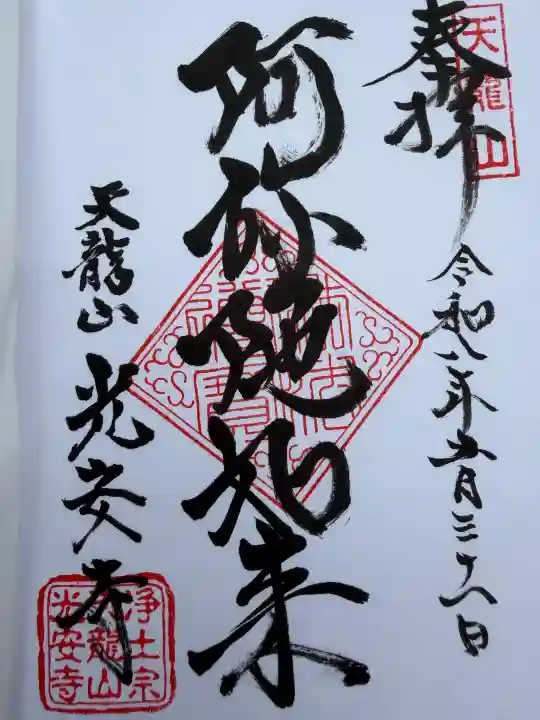 奉拝
天龍山
令和八年五月三十一日
阿弥陀如来
天龍山 光安寺
浄土宗
天龍山
光安寺